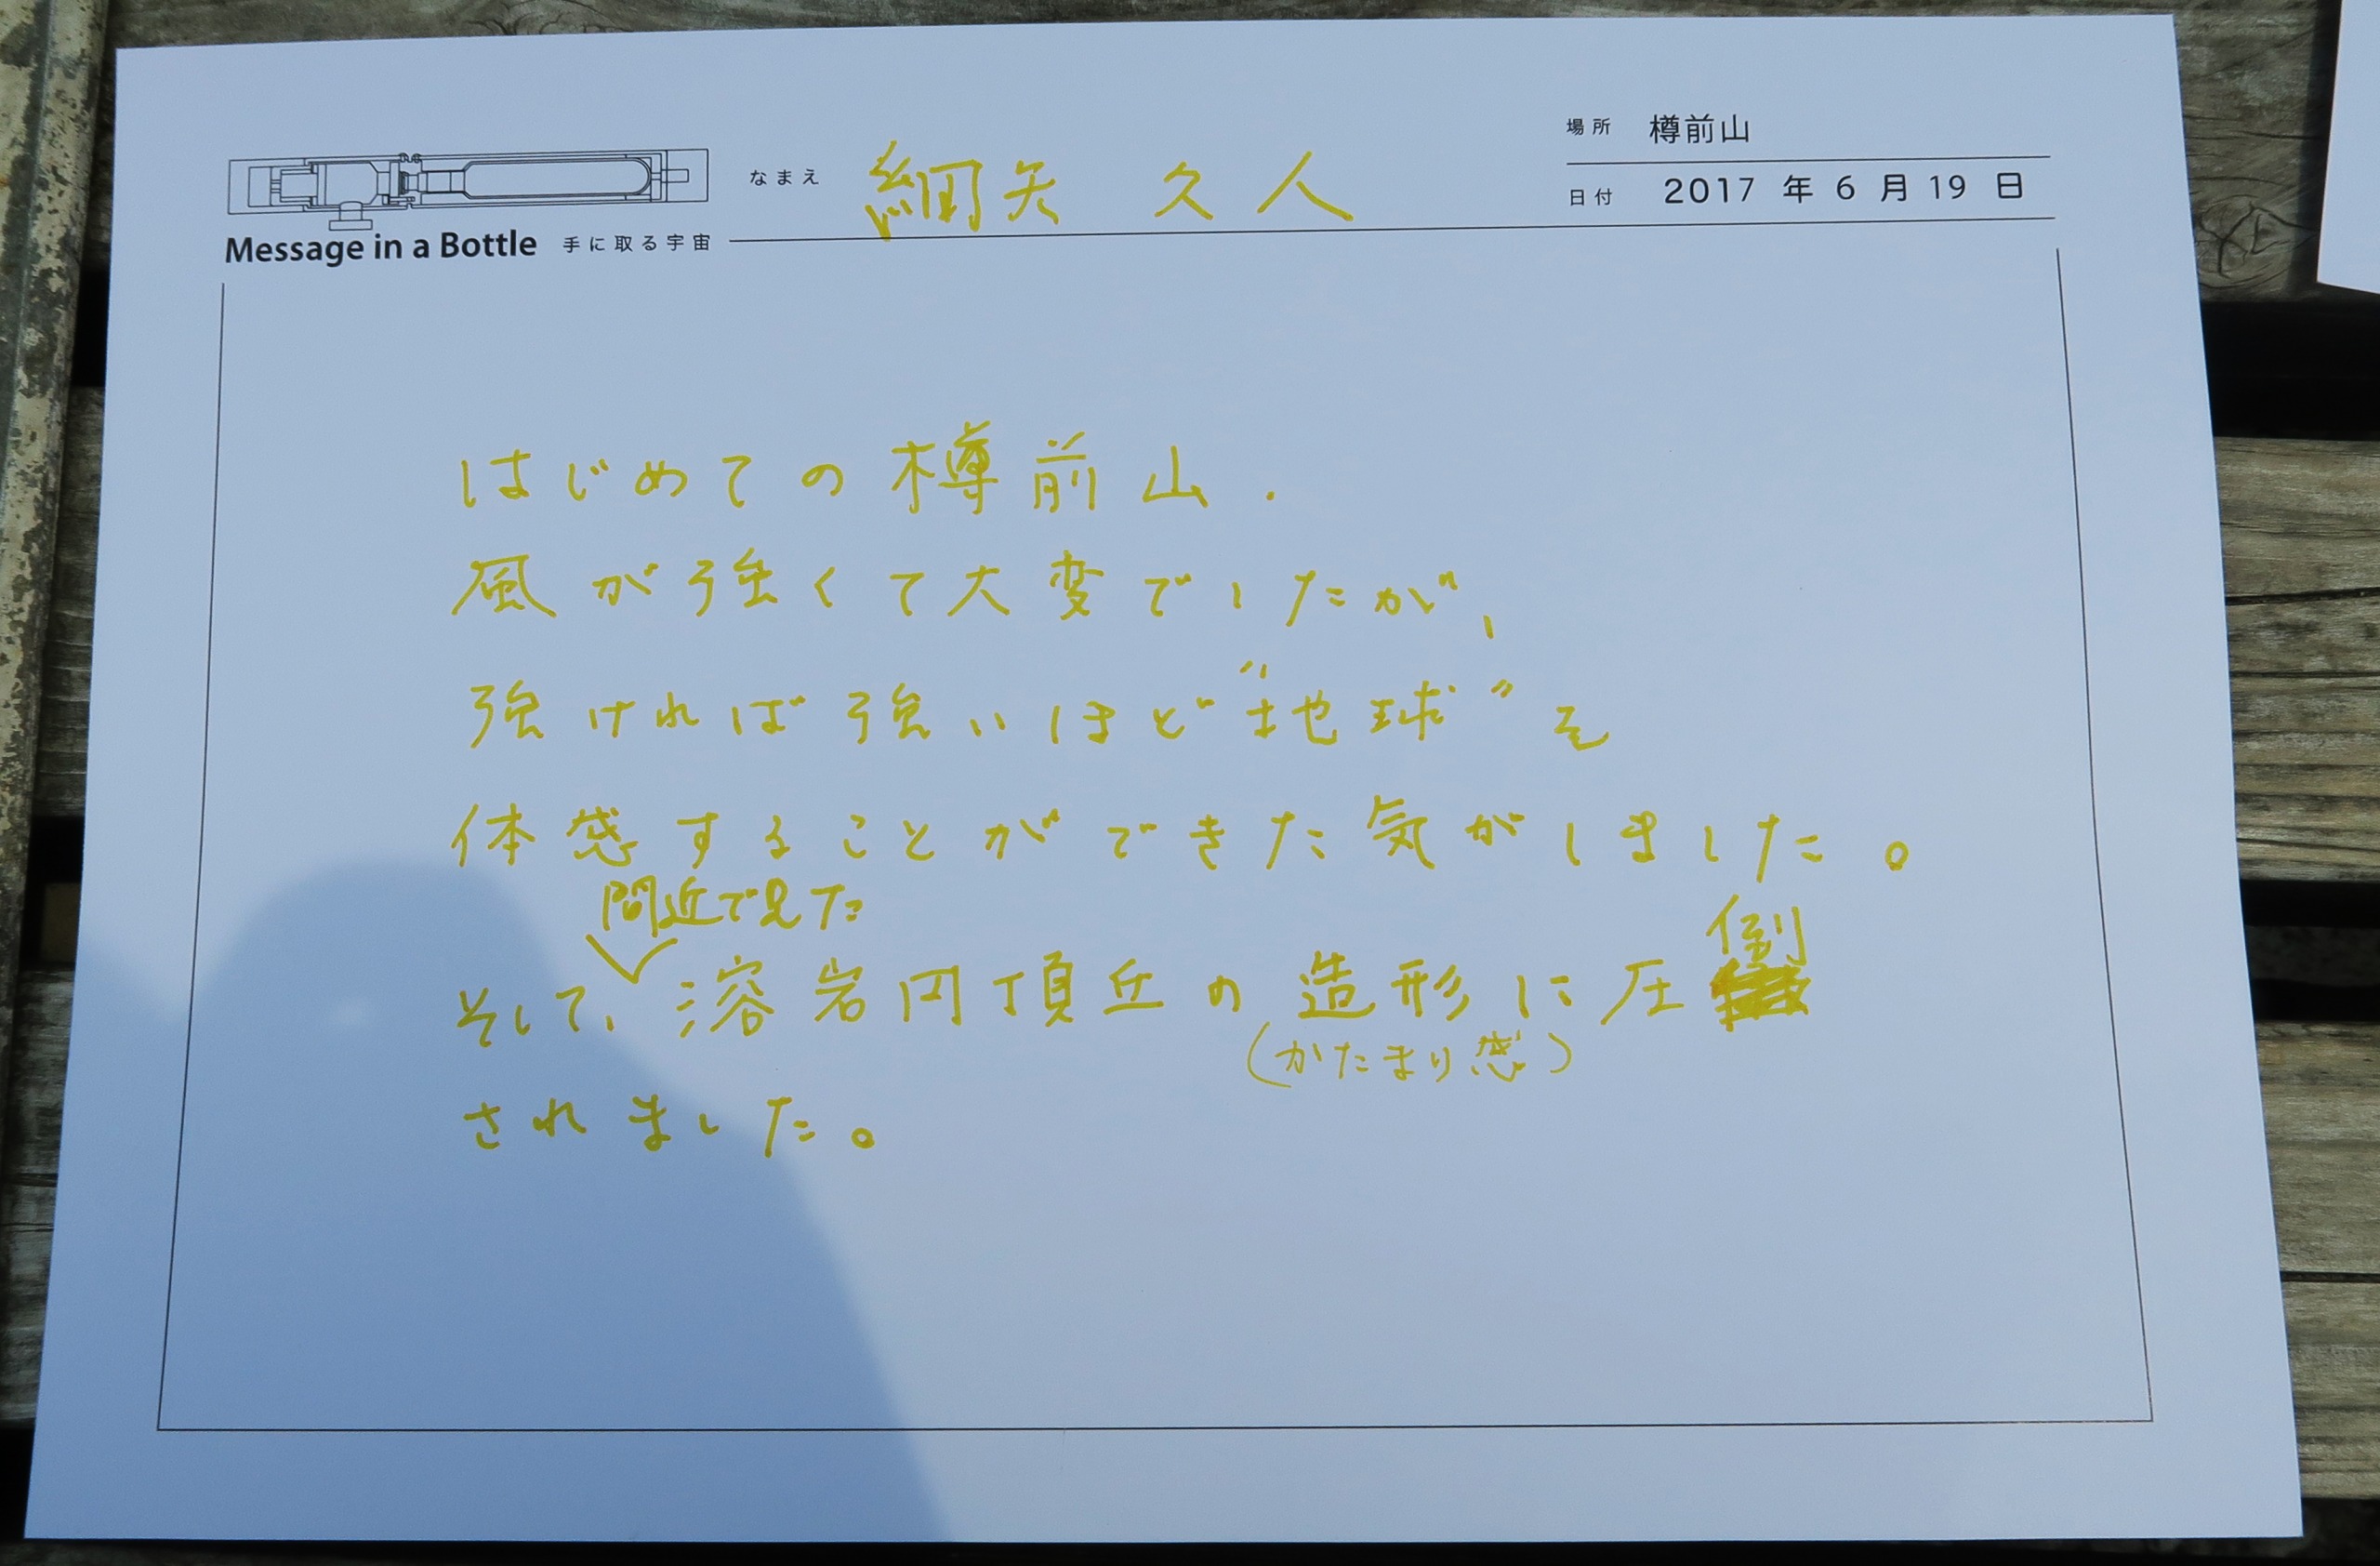 場所 樽前山
なまえ 細矢 久人
日付 2017 年 6 月 19 日
Message in a Bottle 手に取る宇宙
はじめての樽前山.
風が強くて大変でしたが、
強ければ強いほど"地球"を
体感することができた気がしました。
間近で見た
そして、溶岩円頂丘の造形に圧倒
(かたまり感)
されました。